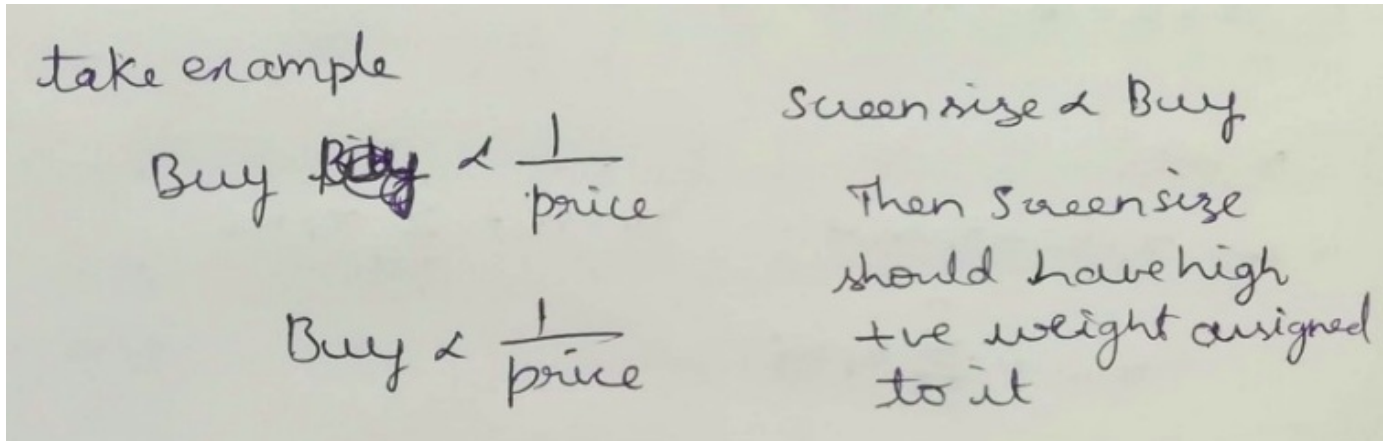 take example
Buy ∝ 1/price
Buy ∝ 1/price
Screen size ∝ Buy
Then Screensize
should have high
+ve weight assigned
to it